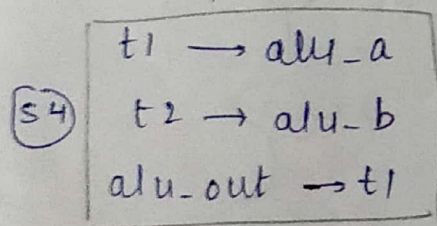 t1 → alu_a
S4 t2 → alu_b
alu_out → t1